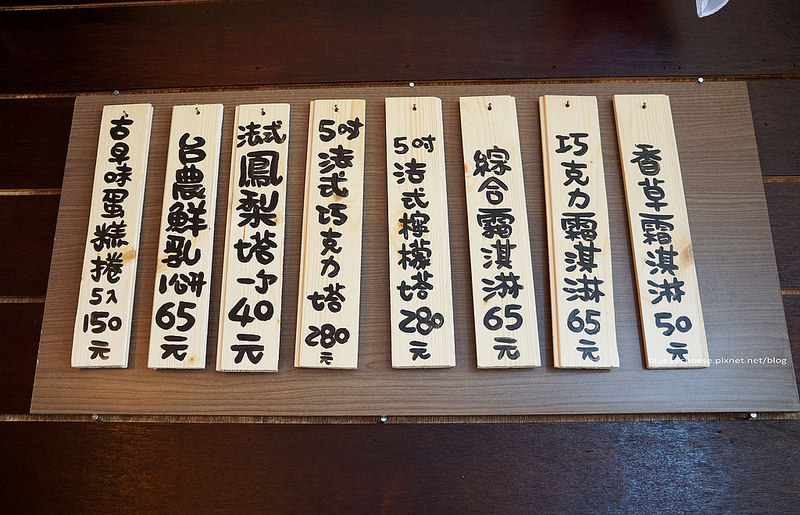 香草霜淇淋50元
巧克力霜淇淋65元
綜合霜淇淋65元
5吋法式檸檬塔280元
5吋法式巧克力塔280元
法式鳳梨塔一个40元
台農鮮乳1心餅65元
古早味蛋糕捲5入150元